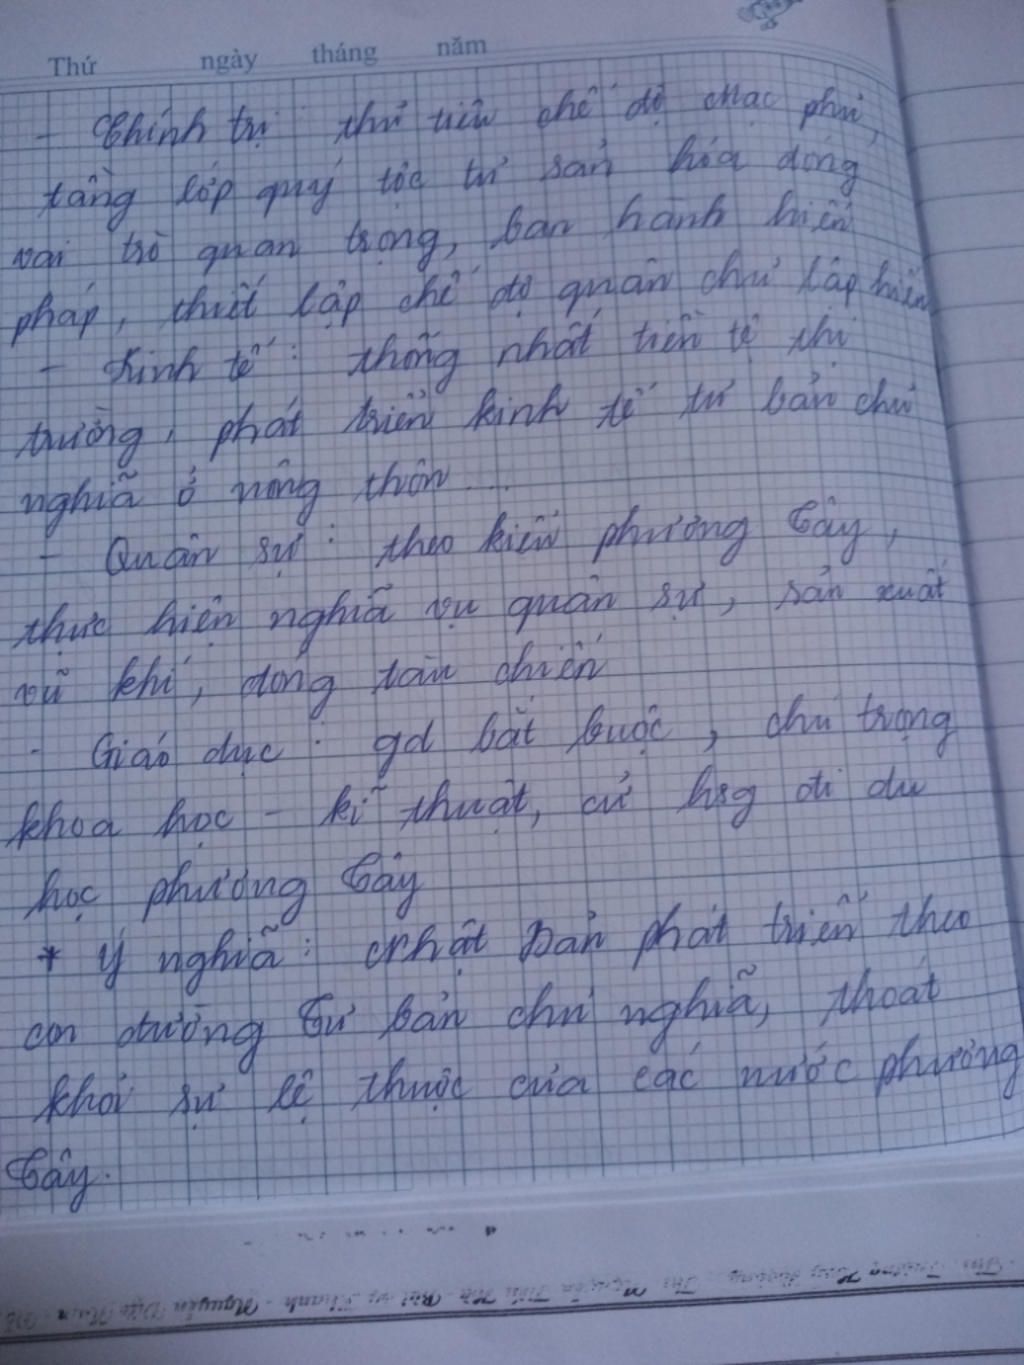 Thứ ngày tháng năm
- Chính trị: thủ tiêu chế độ Mạc phủ,
tầng lớp quý tộc tư sản hóa đóng
vai trò quan trọng, ban hành hiến
pháp, thiết lập chế độ quân chủ lập hiến
- Kinh tế: thống nhất tiền tệ thị
trường, phát triển kinh tế tư bản chủ
nghĩa ở nông thôn...
- Quân sự: theo kiểu phương Tây,
thực hiện nghĩa vụ quân sự, sản xuất
vũ khí, đóng tàu chiến
- Giáo dục: gd bắt buộc, chú trọng
khoa học - kĩ thuật, cử hsg đi du
học phương Tây
* Ý nghĩa: Nhật Bản phát triển theo
con đường Tư bản chủ nghĩa, thoát
khỏi sự lệ thuộc của các nước phương
Tây.